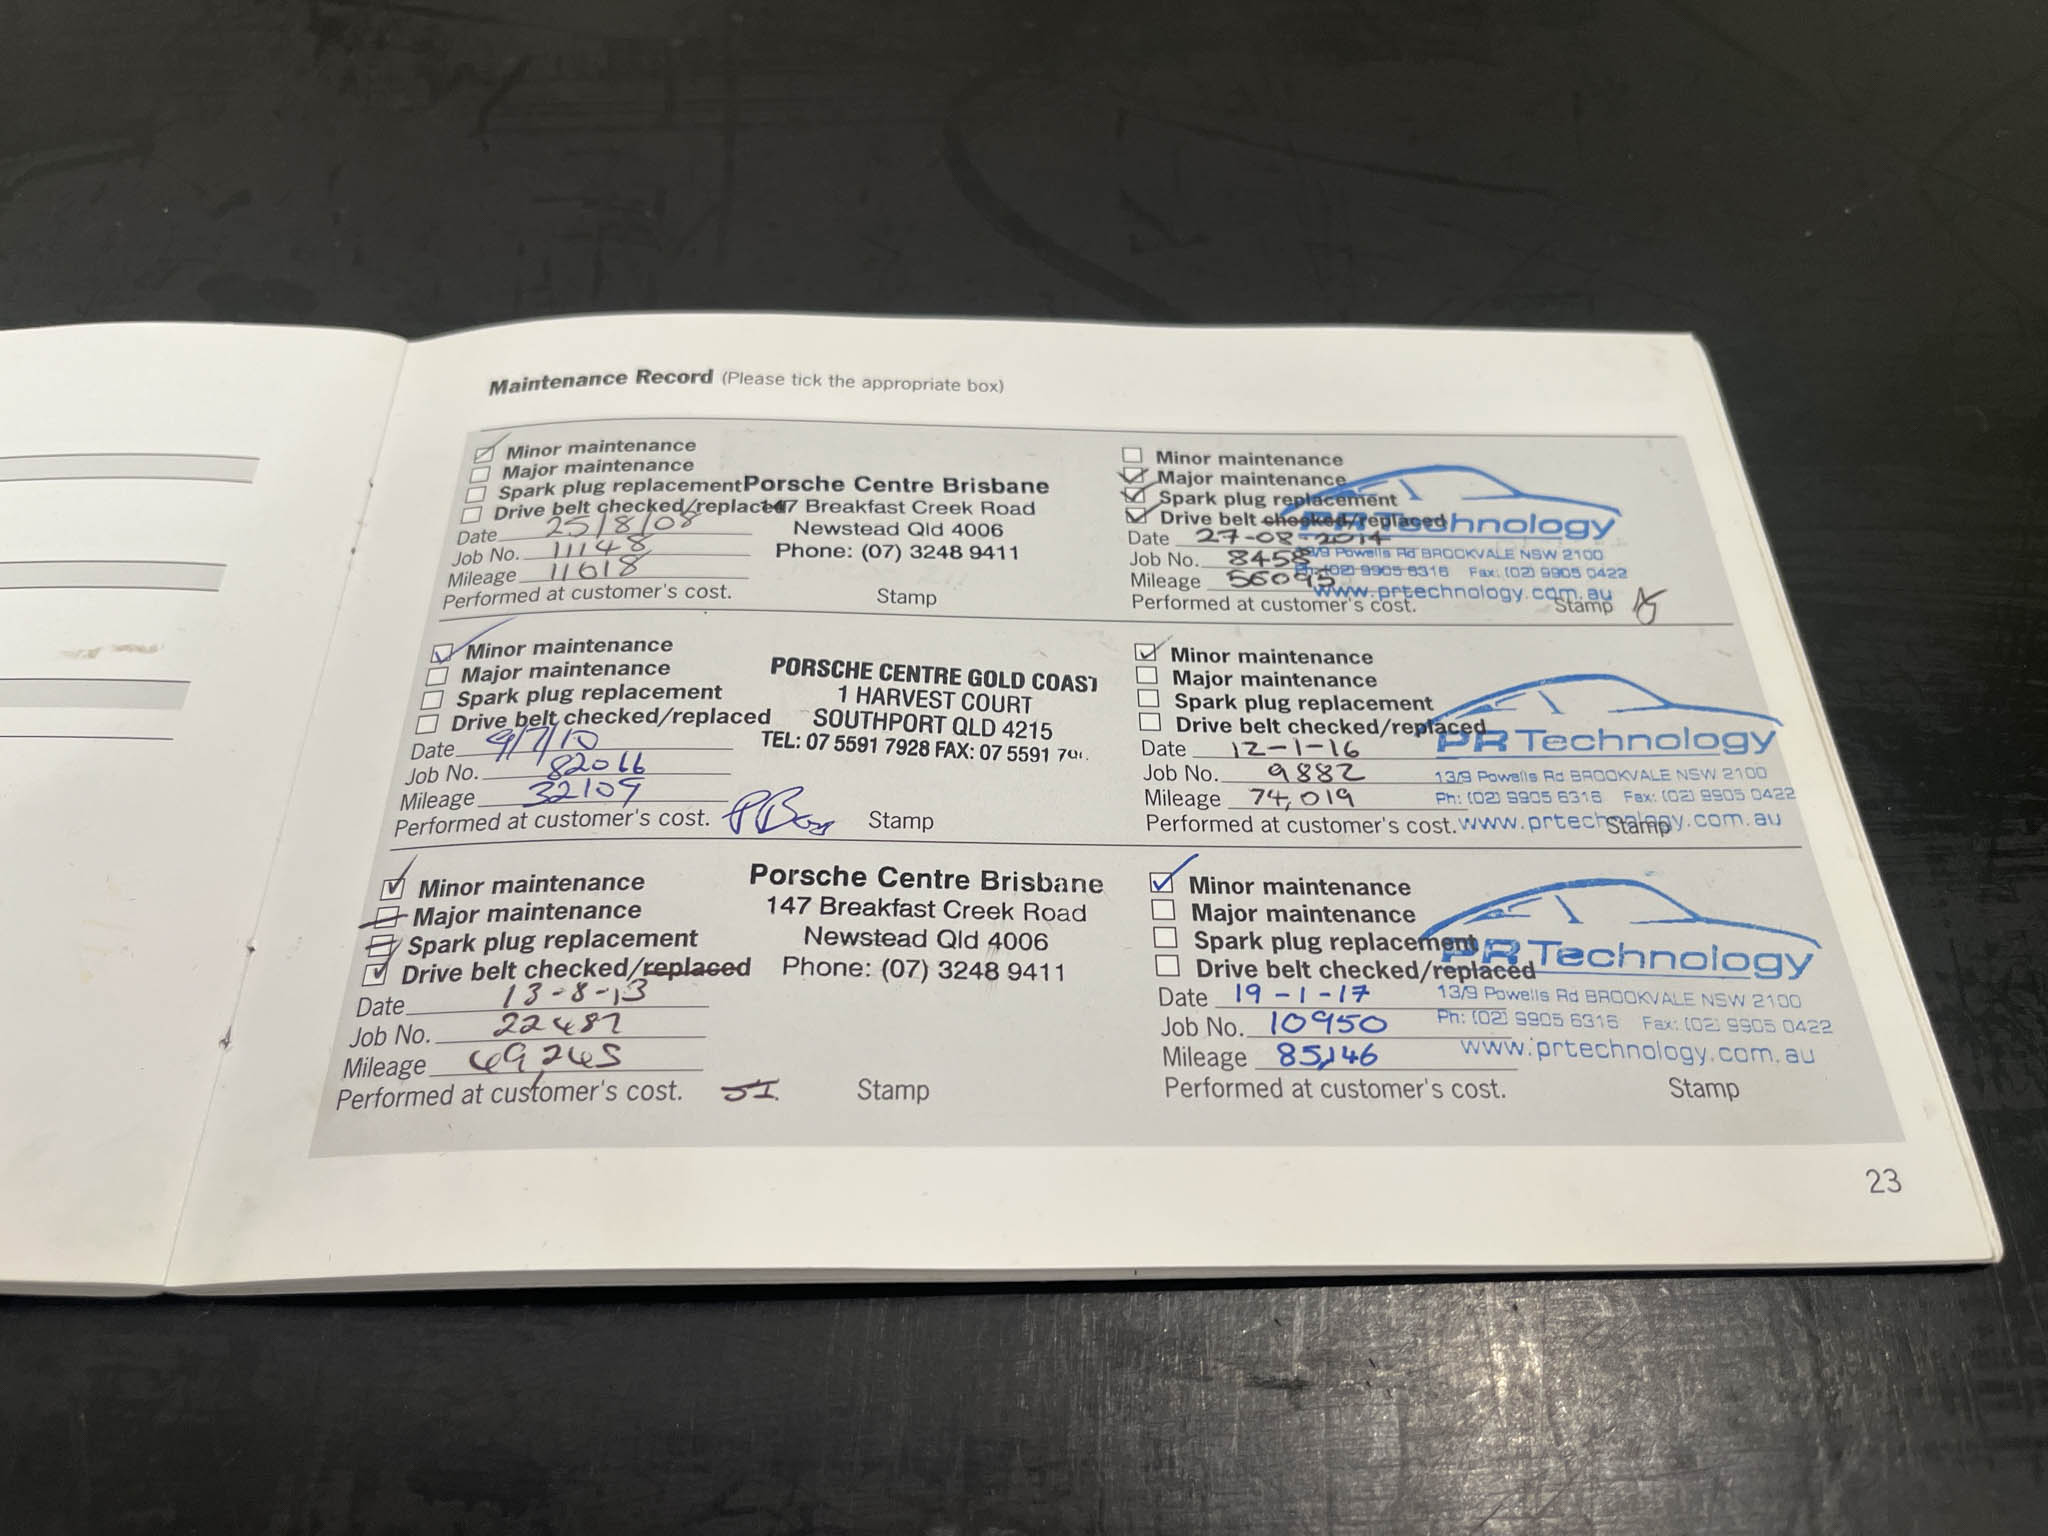 Maintenance Record (Please tick the appropriate box)
Minor maintenance
Major maintenance
Spark plug replacement
Drive belt checked/replaced
Date 25/8/08
Job No. 11148
Mileage 11618
Performed at customer's cost.
Porsche Centre Brisbane
147 Breakfast Creek Road
Newstead Qld 4006
Phone: (07) 3248 9411
Stamp
Minor maintenance
Major maintenance
Spark plug replacement
Drive belt checked/replaced
Date 9/7/10
Job No. 82066
Mileage 32109
Performed at customer's cost.
PORSCHE CENTRE GOLD COAST
1 HARVEST COURT
SOUTHPORT QLD 4215
TEL: 07 5591 7928 FAX: 07 5591
Stamp
Minor maintenance
Major maintenance
Spark plug replacement
Drive belt checked/replaced
Date 13-8-13
Job No. 22487
Mileage 49,245
Performed at customer's cost.
Porsche Centre Brisbane
147 Breakfast Creek Road
Newstead Qld 4006
Phone: (07) 3248 9411
Stamp
Minor maintenance
Major maintenance
Spark plug replacement
Drive belt checked/replaced
Date 27-08-2014
Job No. 8458
Mileage 56095
Performed at customer's cost.
PR Technology
13/9 Powells Rd BROOKVALE NSW 2100
Ph: (02) 9905 6316 Fax: (02) 9905 0422
www.prtechnology.com.au
Stamp
Minor maintenance
Major maintenance
Spark plug replacement
Drive belt checked/replaced
Date 12-1-16
Job No. 9882
Mileage 74,019
Performed at customer's cost.
PR Technology
13/9 Powells Rd BROOKVALE NSW 2100
Ph: (02) 9905 6316 Fax: (02) 9905 0422
www.prtechnology.com.au
Stamp
Minor maintenance
Major maintenance
Spark plug replacement
Drive belt checked/replaced
Date 19-1-17
Job No. 10950
Mileage 85,146
Performed at customer's cost.
PR Technology
13/9 Powells Rd BROOKVALE NSW 2100
Ph: (02) 9905 6316 Fax: (02) 9905 0422
www.prtechnology.com.au
Stamp
23